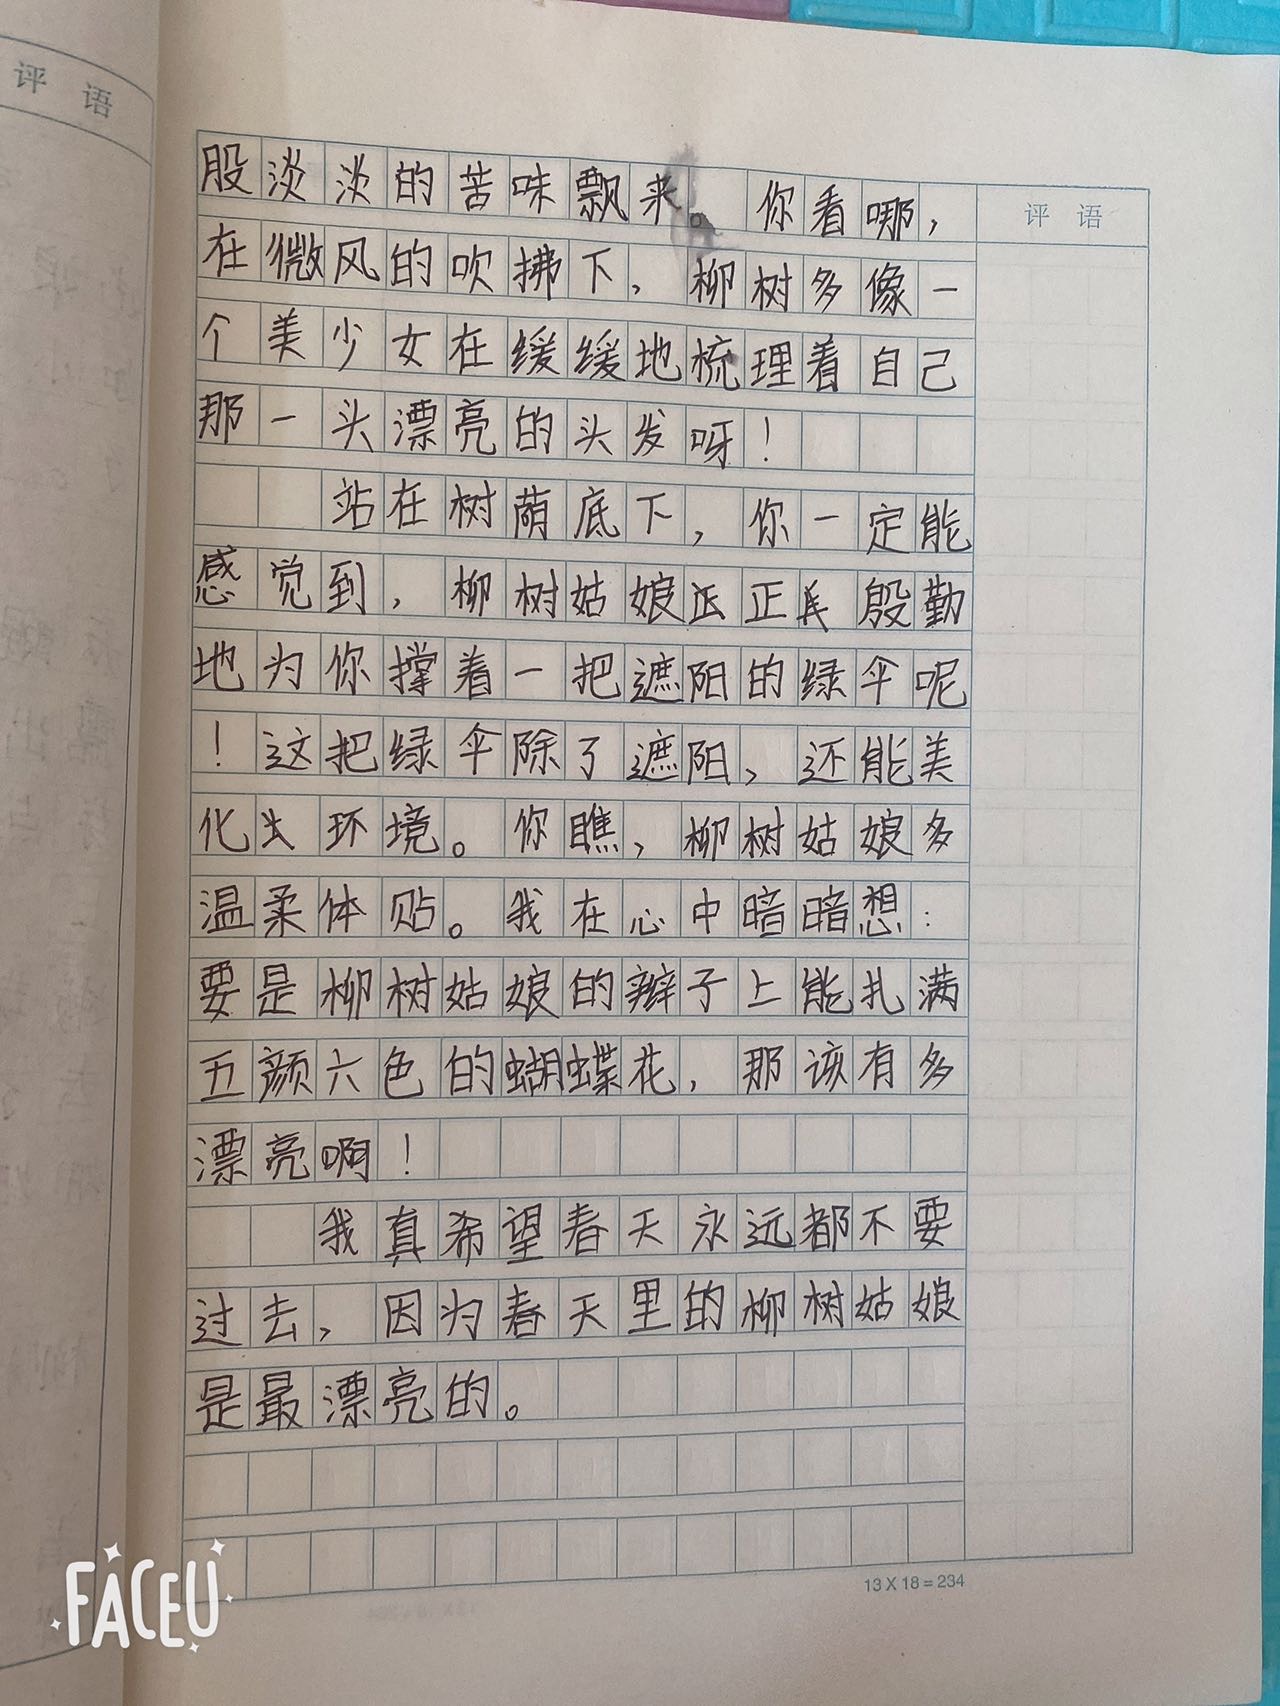 评语
股淡淡的苦味飘来。你看哪，
评语
在微风的吹拂下，柳树多像一
个美少女在缓缓地梳理着自己
那一头漂亮的头发呀！
站在树荫底下，你一定能
感觉到，柳树姑娘正正殷勤
地为你撑着一把遮阳的绿伞呢
！这把绿伞除了遮阳，还能美
化环境。你瞧，柳树姑娘多
温柔体贴。我在心中暗暗想：
要是柳树姑娘的辫子上能扎满
五颜六色的蝴蝶花，那该有多
漂亮啊！
我真希望春天永远都不要
过去，因为春天里的柳树姑娘
是最漂亮的。
13×18=234
FACEU